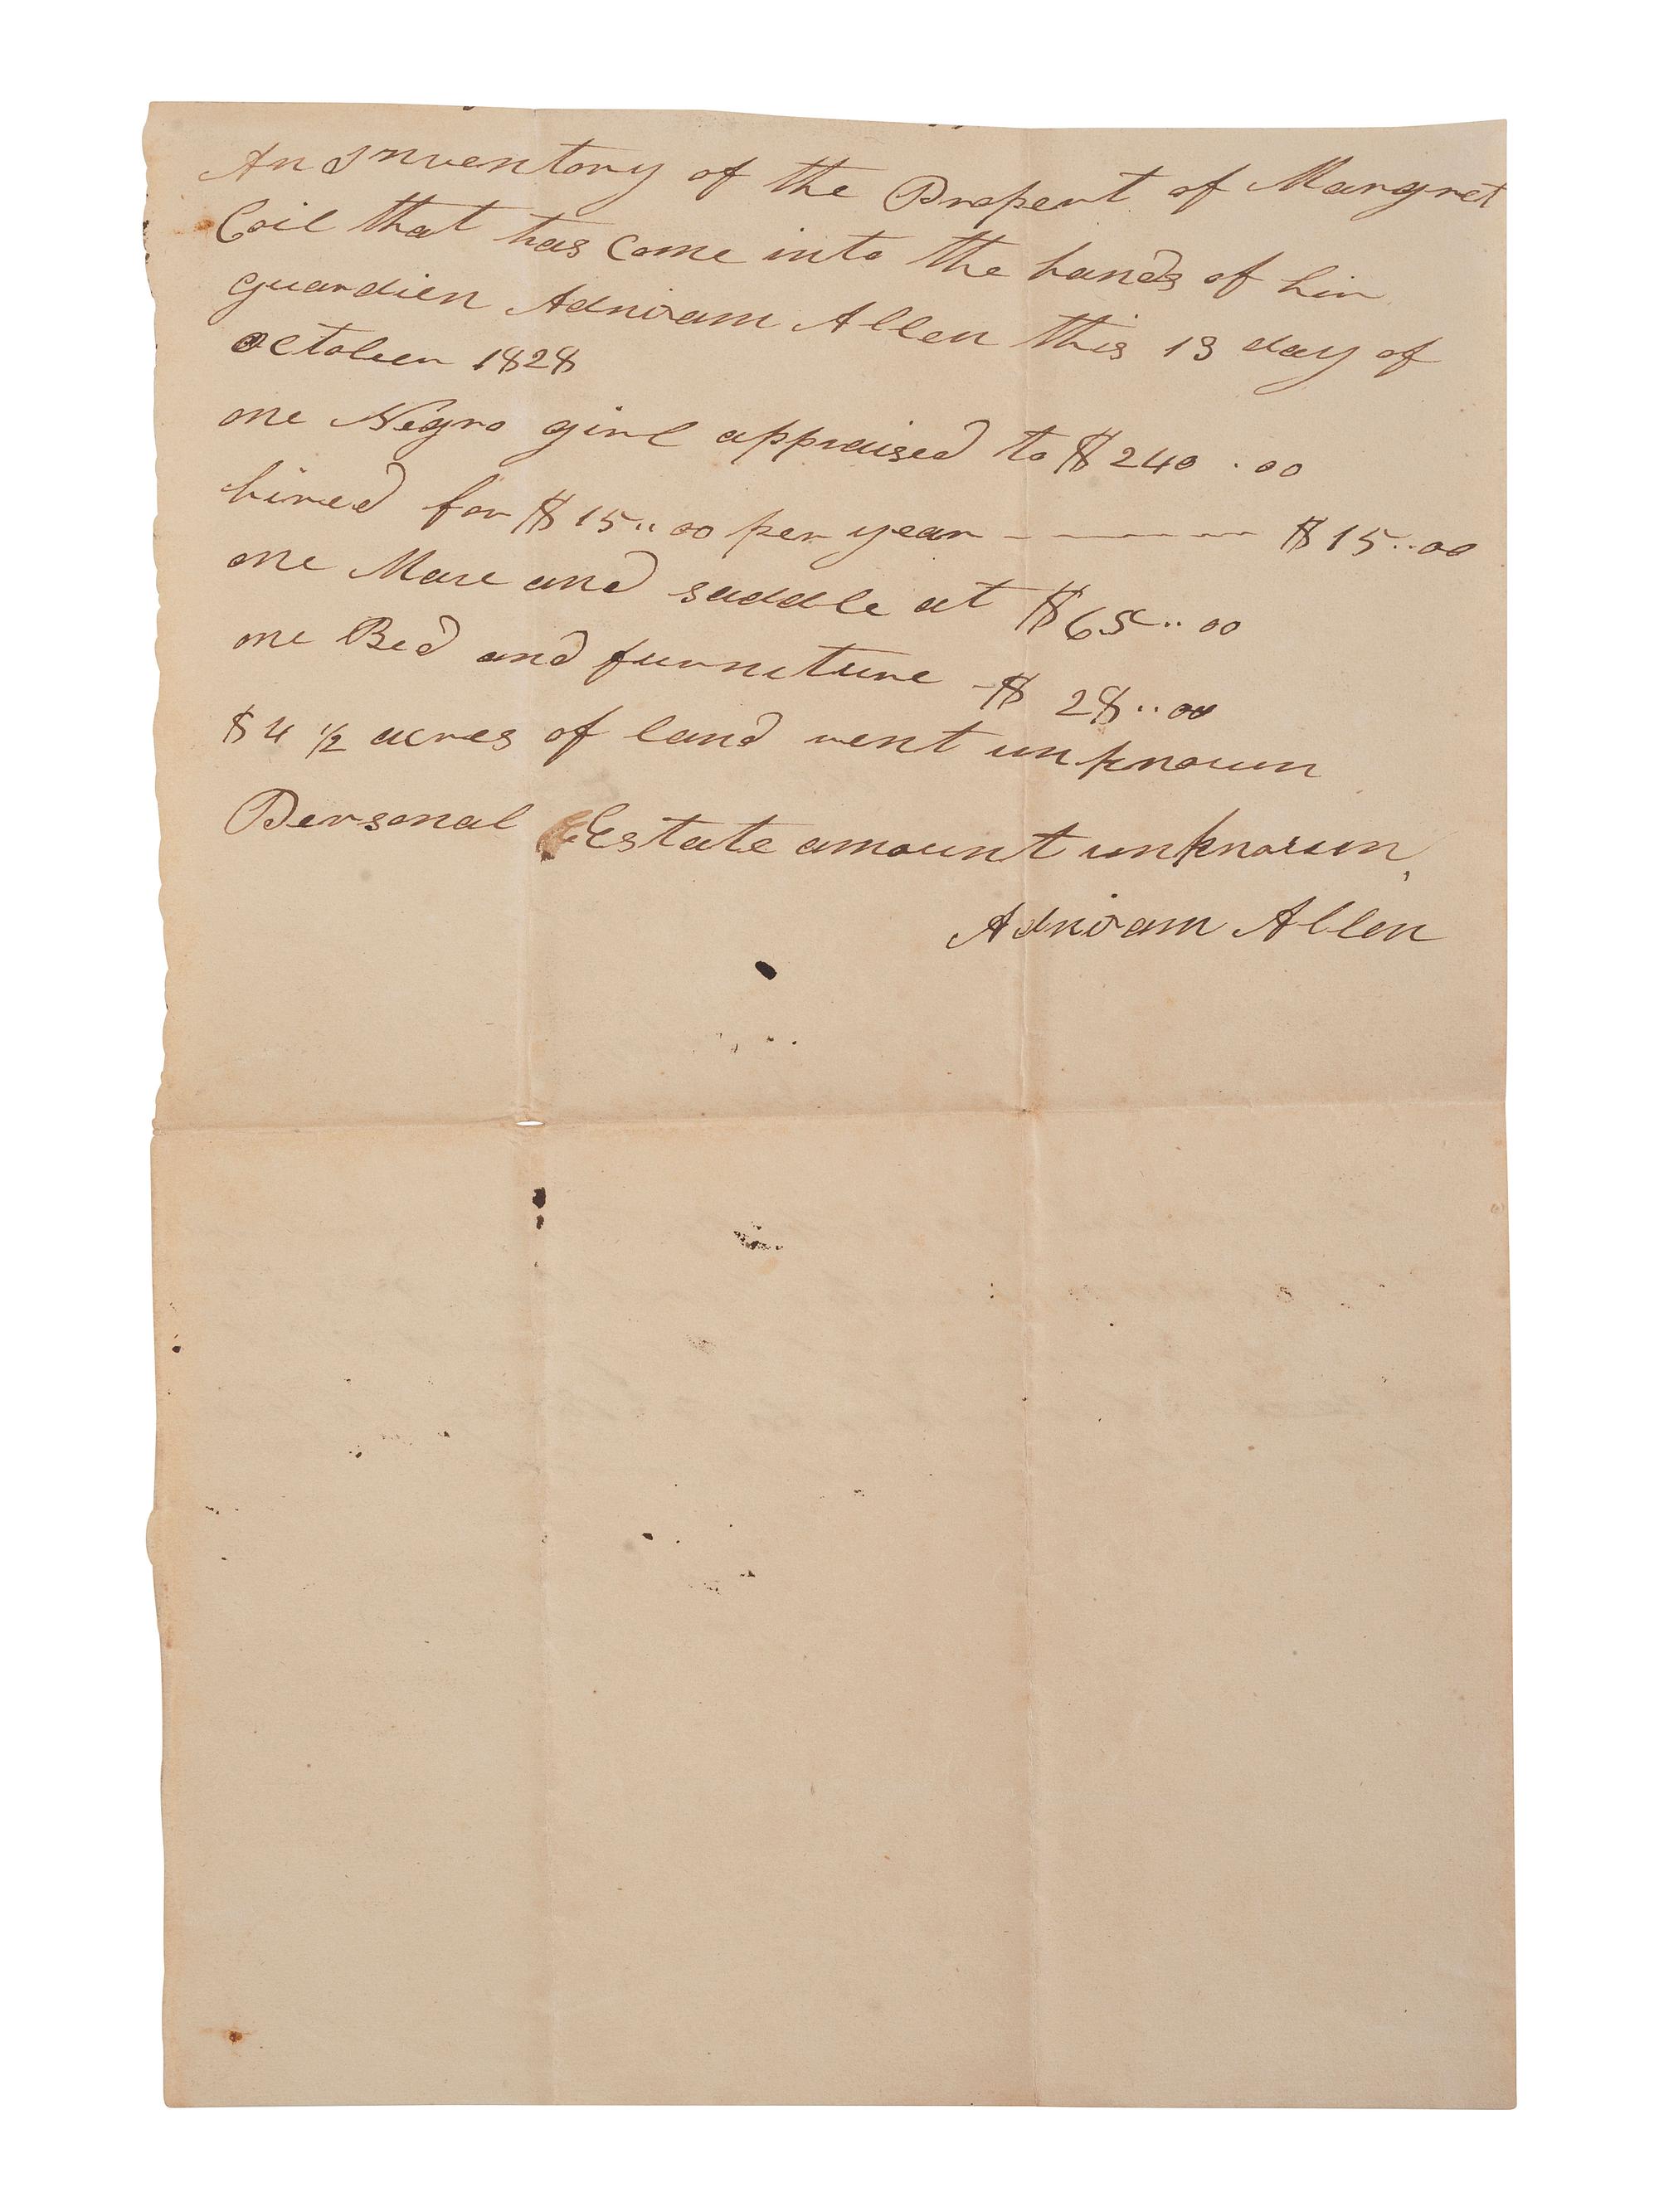 An Inventory of the Propert of Margret
Coil that has Come into the hands of hir
guardien Adniram Allen this 13 day of
october 1828
one Negro girl appraised to $240.00
hired for $15..00 per year ------ $15..00
one Mare and saddle at $65..00
one Bed and furniture $28..00
84 1/2 acres of land rent unknown
Personal Eestate amount unknown,
Adniram Allen